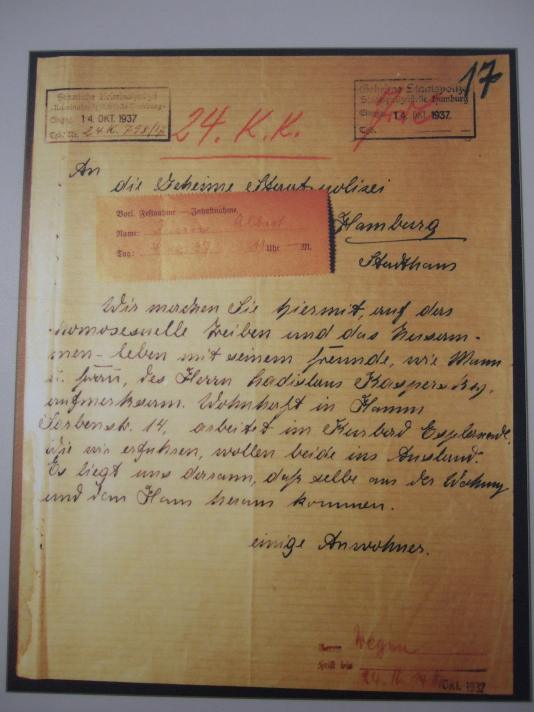 Staatliche Kriminalpolizei
Eing. 14. OKT. 1937
Tgb. Nr. 24.K.
Geheime Staatspolizei
Staatspolizeistelle Hamburg
Eing. 14. OKT. 1937
Tgb.
17
24. K. K.
An
die Geheime Staatspolizei
Hamburg
Stadthaus
Vorl. Festnahme — Inhaftnahme.
Name: Albert
Tag: Uhr M.
Wir machen Sie hiermit, auf das
homosexuelle Treiben und das Zusam-
men-leben mit seinem Freunde, wie Mann
u. Frau, des Herrn Ladislaus
aufmerksam. Wohnhaft in Hamm
Sorbenstr. 14, arbeitet im Kurbad Esplanade.
Wie wir erfuhren, wollen beide ins Ausland.
Es liegt uns daran, daß selbe aus der Wohnung
und dem Haus heraus kommen.
einige Anwohner.
Herrn Wegner
Frist bis
OKT. 1937